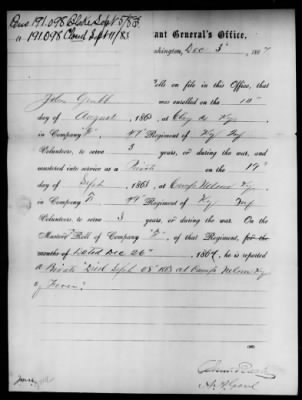 Pens 191.098 Sept 5/83
" 191.098 Cloud Sept 11/83
ant General's Office,
shington, Dec 3d, 1887
olls on file in this Office, that
John Grubb was enrolled on the 10th
day of August, 1863 at Clay Co Ky.
in Company " " 49 Regiment of Ky Inf
Volunteers, to serve 3 years, or during the war, and
mustered into service as a Private on the 19th
day of Sept, 1863 at Camp Nelson Ky.
in Company 49 Regiment of Ky Inf
Volunteers, to serve 3 years, or during the war. On the
Muster Roll of Company of that Regiment, for the
months of dated Dec 26th, 1864, he is reported
a Private "Died Sept 1863 at Camp Nelson Ky
of Fever."